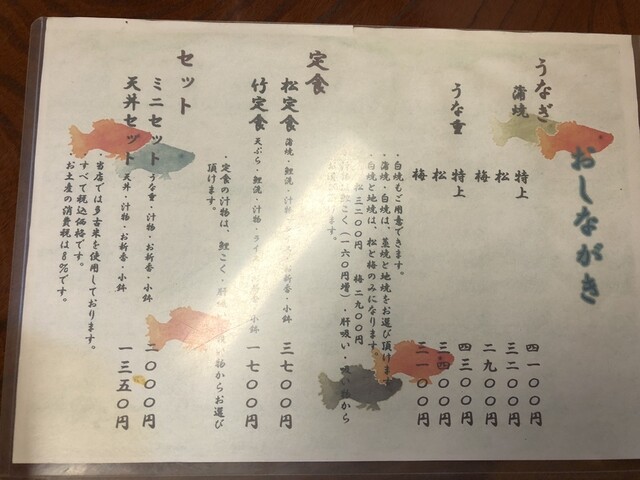 おしながき
うなぎ
蒲焼
特上 四一〇〇円
松 三二〇〇円
梅 二九〇〇円
うな重
特上 四三〇〇円
松 三四〇〇円
梅 三一〇〇円
・白焼もご用意できます。
・蒲焼・白焼は、蒸焼と地焼をお選び頂けます
・白焼と地焼は、松と梅のみになります。
松 三二〇〇円 梅 二九〇〇円
鯉こく(一六〇円増)・肝吸い・ 物から
ます。
定食
松定食 蒲焼・鯉洗・汁物・ お新香・小鉢 三七〇〇円
竹定食 天ぷら・鯉洗・汁物・ライス 小鉢 一七〇〇円
・定食の汁物は、鯉こく・肝吸 い物からお選び
頂けます。
セット
ミニセット うな重・汁物・お新香・小鉢 二〇〇〇円
天丼セット 天丼・汁物・お新香・小鉢 一三五〇円
・当店では多古米を使用しております。
・すべて税込価格です。
・お土産の消費税は8%です。